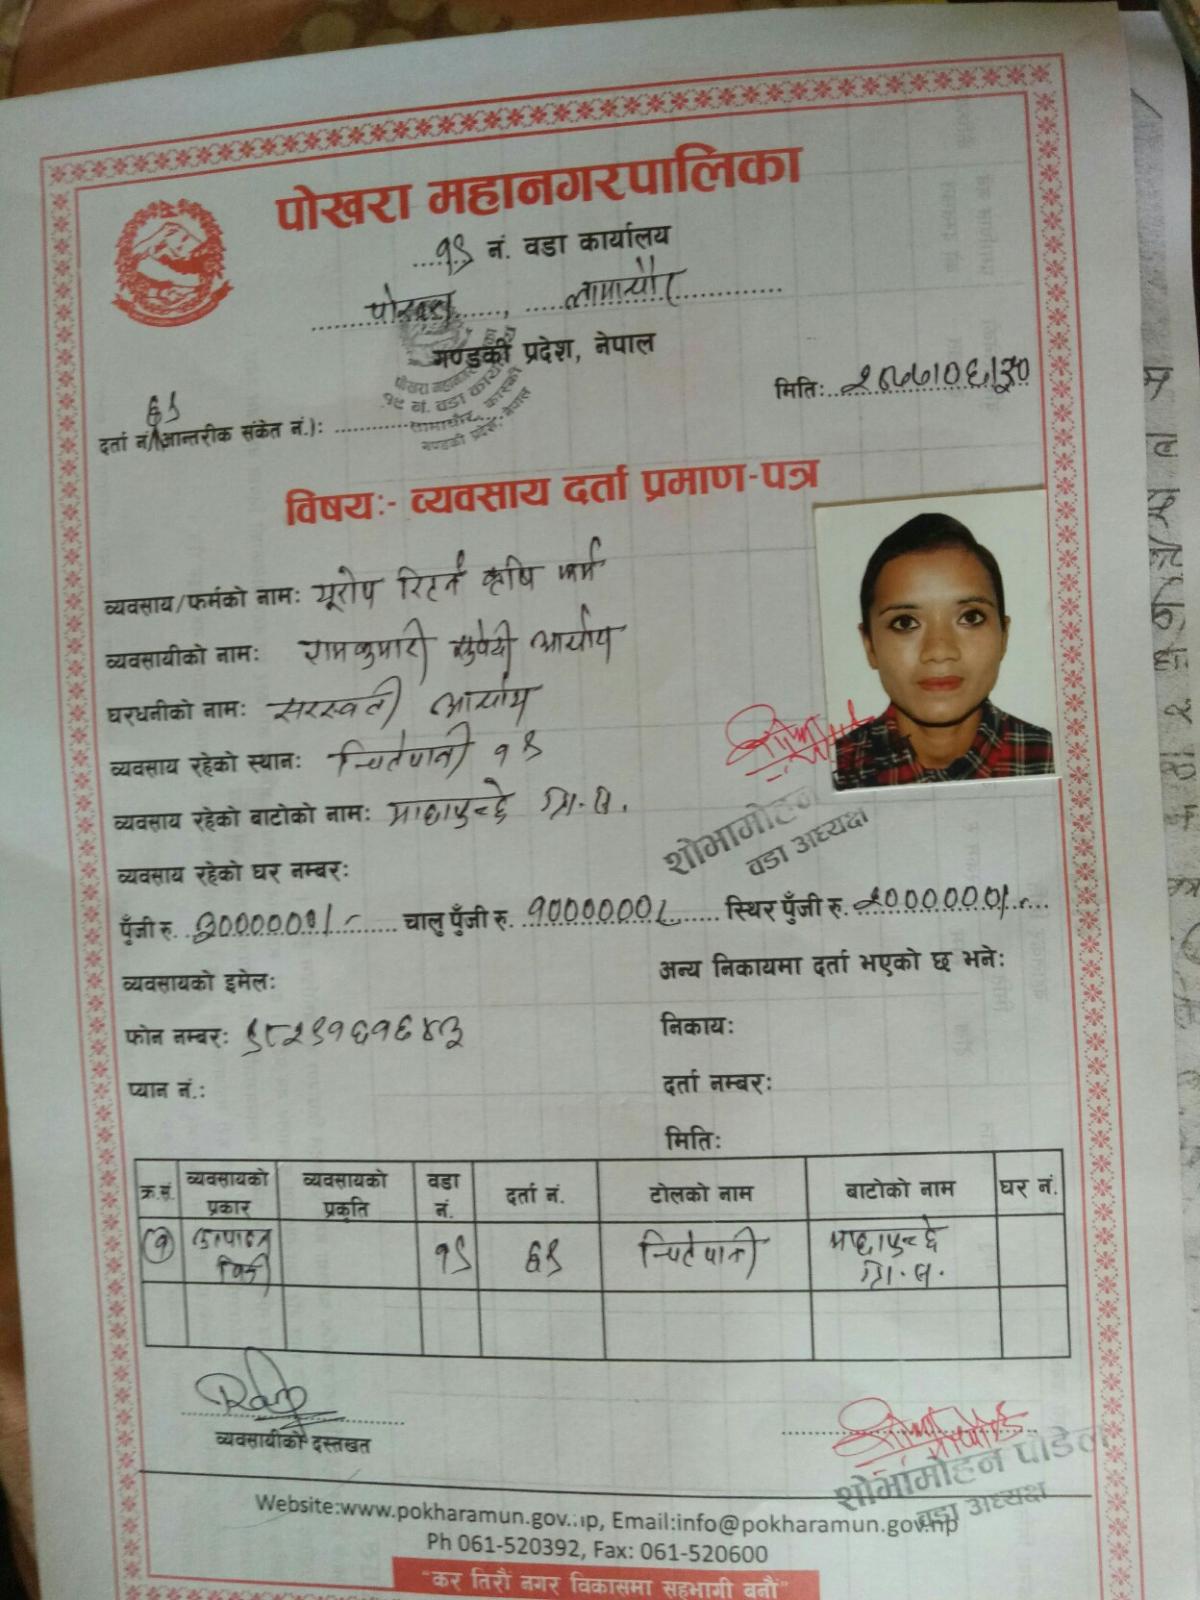 पोखरा महानगरपालिका
१९ नं. वडा कार्यालय
पोखरा, लामाचौर
गण्डकी प्रदेश, नेपाल
पोखरा महानगरपालिका
१९ नं. वडा कार्यालय
लामाचौर, कास्की
गण्डकी प्रदेश, नेपाल
मिति: २०७७।०६।३०
६९
दर्ता नं.(आन्तरीक संकेत नं.):
विषय:- व्यवसाय दर्ता प्रमाण-पत्र
व्यवसाय/फर्मको नाम: यूरोप रिटर्न कृषि फर्म
व्यवसायीको नाम: रामकुमारी सुवेदी आचार्य
घरधनीको नाम: सरस्वती आचार्य
व्यवसाय रहेको स्थान: चितेपानी १९
व्यवसाय रहेको बाटोको नाम: माछापुच्छ्रे
शोभामोहन
वडा अध्यक्ष
व्यवसाय रहेको घर नम्बर:
पुँजी रु. ३००००००।- चालु पुँजी रु. १००००००।- स्थिर पुँजी रु. २००००००।-
व्यवसायको इमेल: अन्य निकायमा दर्ता भएको छ भने:
फोन नम्बर: ९८२९१६१६४३ निकाय:
प्यान नं.: दर्ता नम्बर:
मिति:
क्र.सं. व्यवसायको प्रकार व्यवसायको प्रकृति वडा नं. दर्ता नं. टोलको नाम बाटोको नाम घर नं.
१ उत्पादन बिक्री १९ ६९ चितेपानी माछापुच्छ्रे
व्यवसायीको दस्तखत
शोभामोहन पौडेल
वडा अध्यक्ष
Website:www.pokharamun.gov.np, Email:info@pokharamun.gov.np
Ph 061-520392, Fax: 061-520600
"कर तिरौं नगर विकासमा सहभागी बनौं"